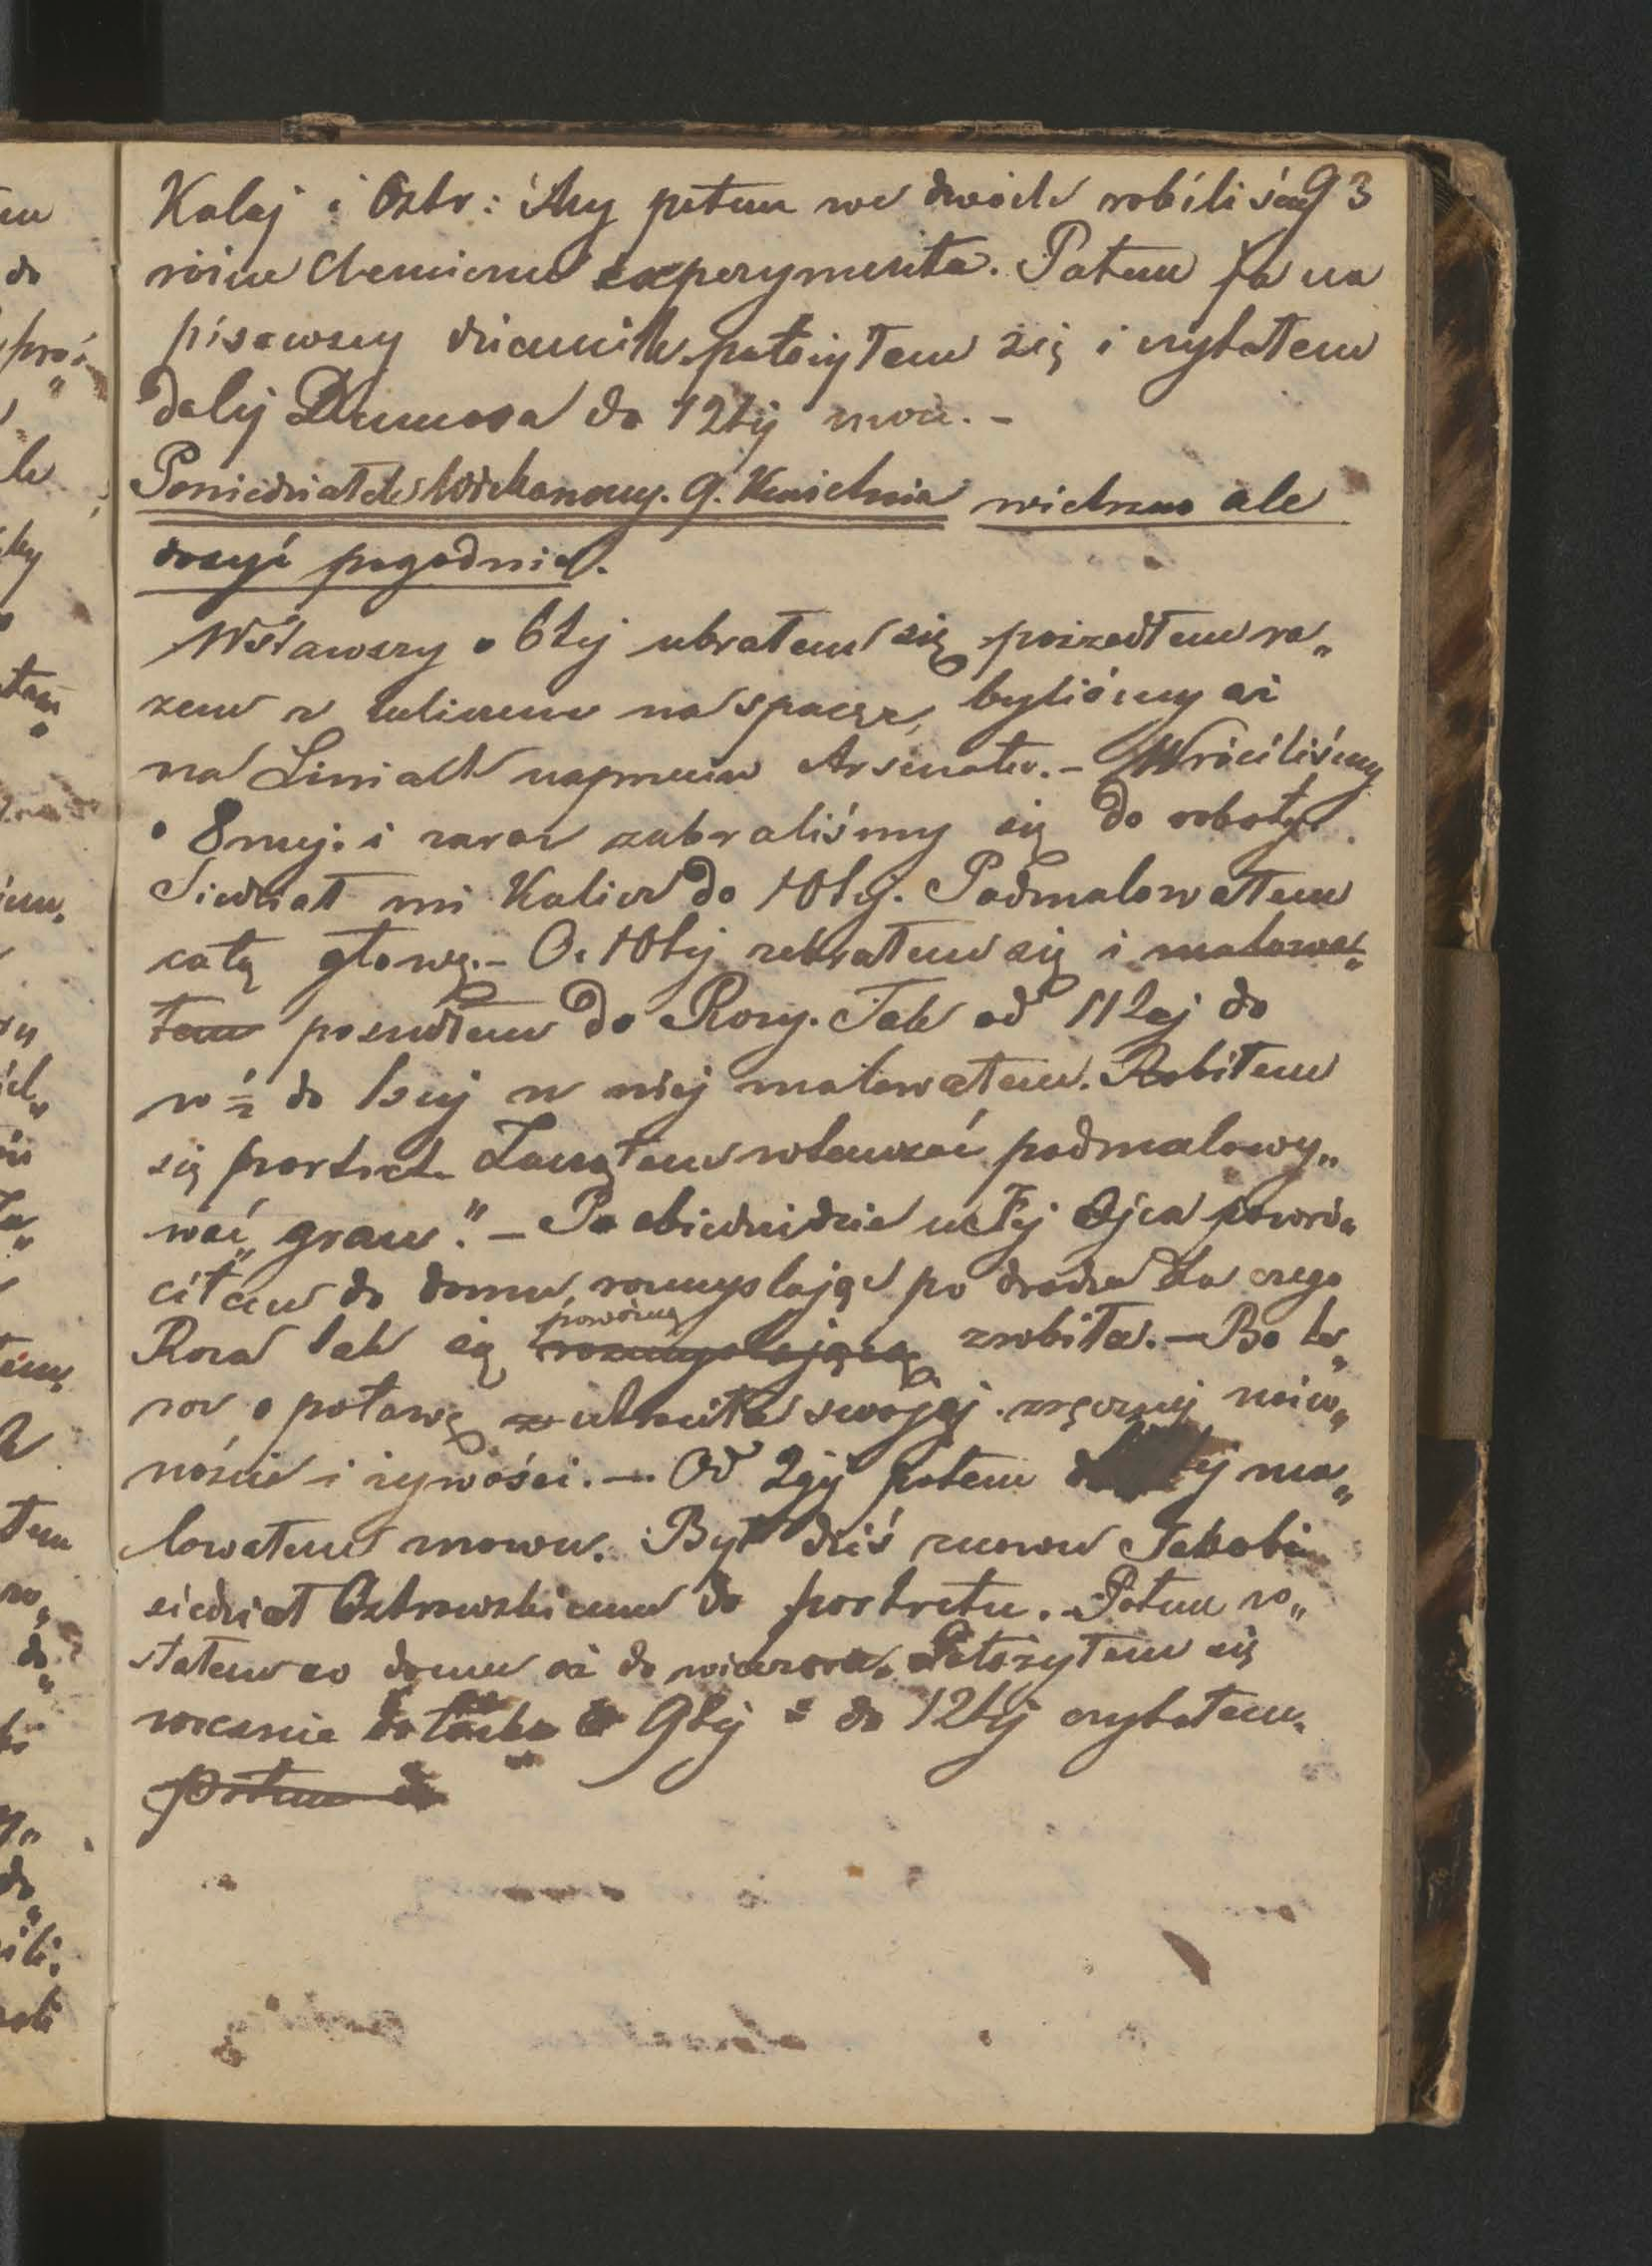 Kalej i Ostr: My potem we dwóch robiliśmy 93
różne Chemiczne experymenta. Potem ja na
pisawszy dziennik położyłem się i czytałem
dalej Dumasa do 12tej w nocy. -
Poniedziałek Wielkanocny. 9. Kwietnia wietrzno ale
dosyć pogodnie.
Wstawszy o 6tej ubrałem się poszedłem ra„
zem z Juliuszem na spacer, byliśmy aż
na Liniach naprzeciw Arsenału. - Wróciliśmy
o 8mej. i zaraz zabraliśmy się do roboty.
Siedział mi Kalicz do 10tej. Podmalowałem
całą głowę. - O. 10tej zebrałem się i malowa„
łem poszedłem do Rozy. Tak od 11tej do
w ½ do 1szej u niej malowałem. Robiłem
się portret. Zacząłem wtenczas podmalowy„
wać „grau". - Po obiedzie u Ojca powró„
ciłem do domu, rozmyślając po drodze dla czego
Roza tak się poważną rozmyślającą zrobiła. - Bo te„
raz o połowę utraciła swojej zręcznej naiw„
ności i żywości. - Od 2giej potem ma„
lowałem znowu. Był dziś znowu Jakobi
siedział Ostrowskiemu do portretu. Potem zo„
stałem w domu aż do wieczora. Położyłem się
wcześnie do łóżka o 9tej i do 12tej czytałem.
potem do